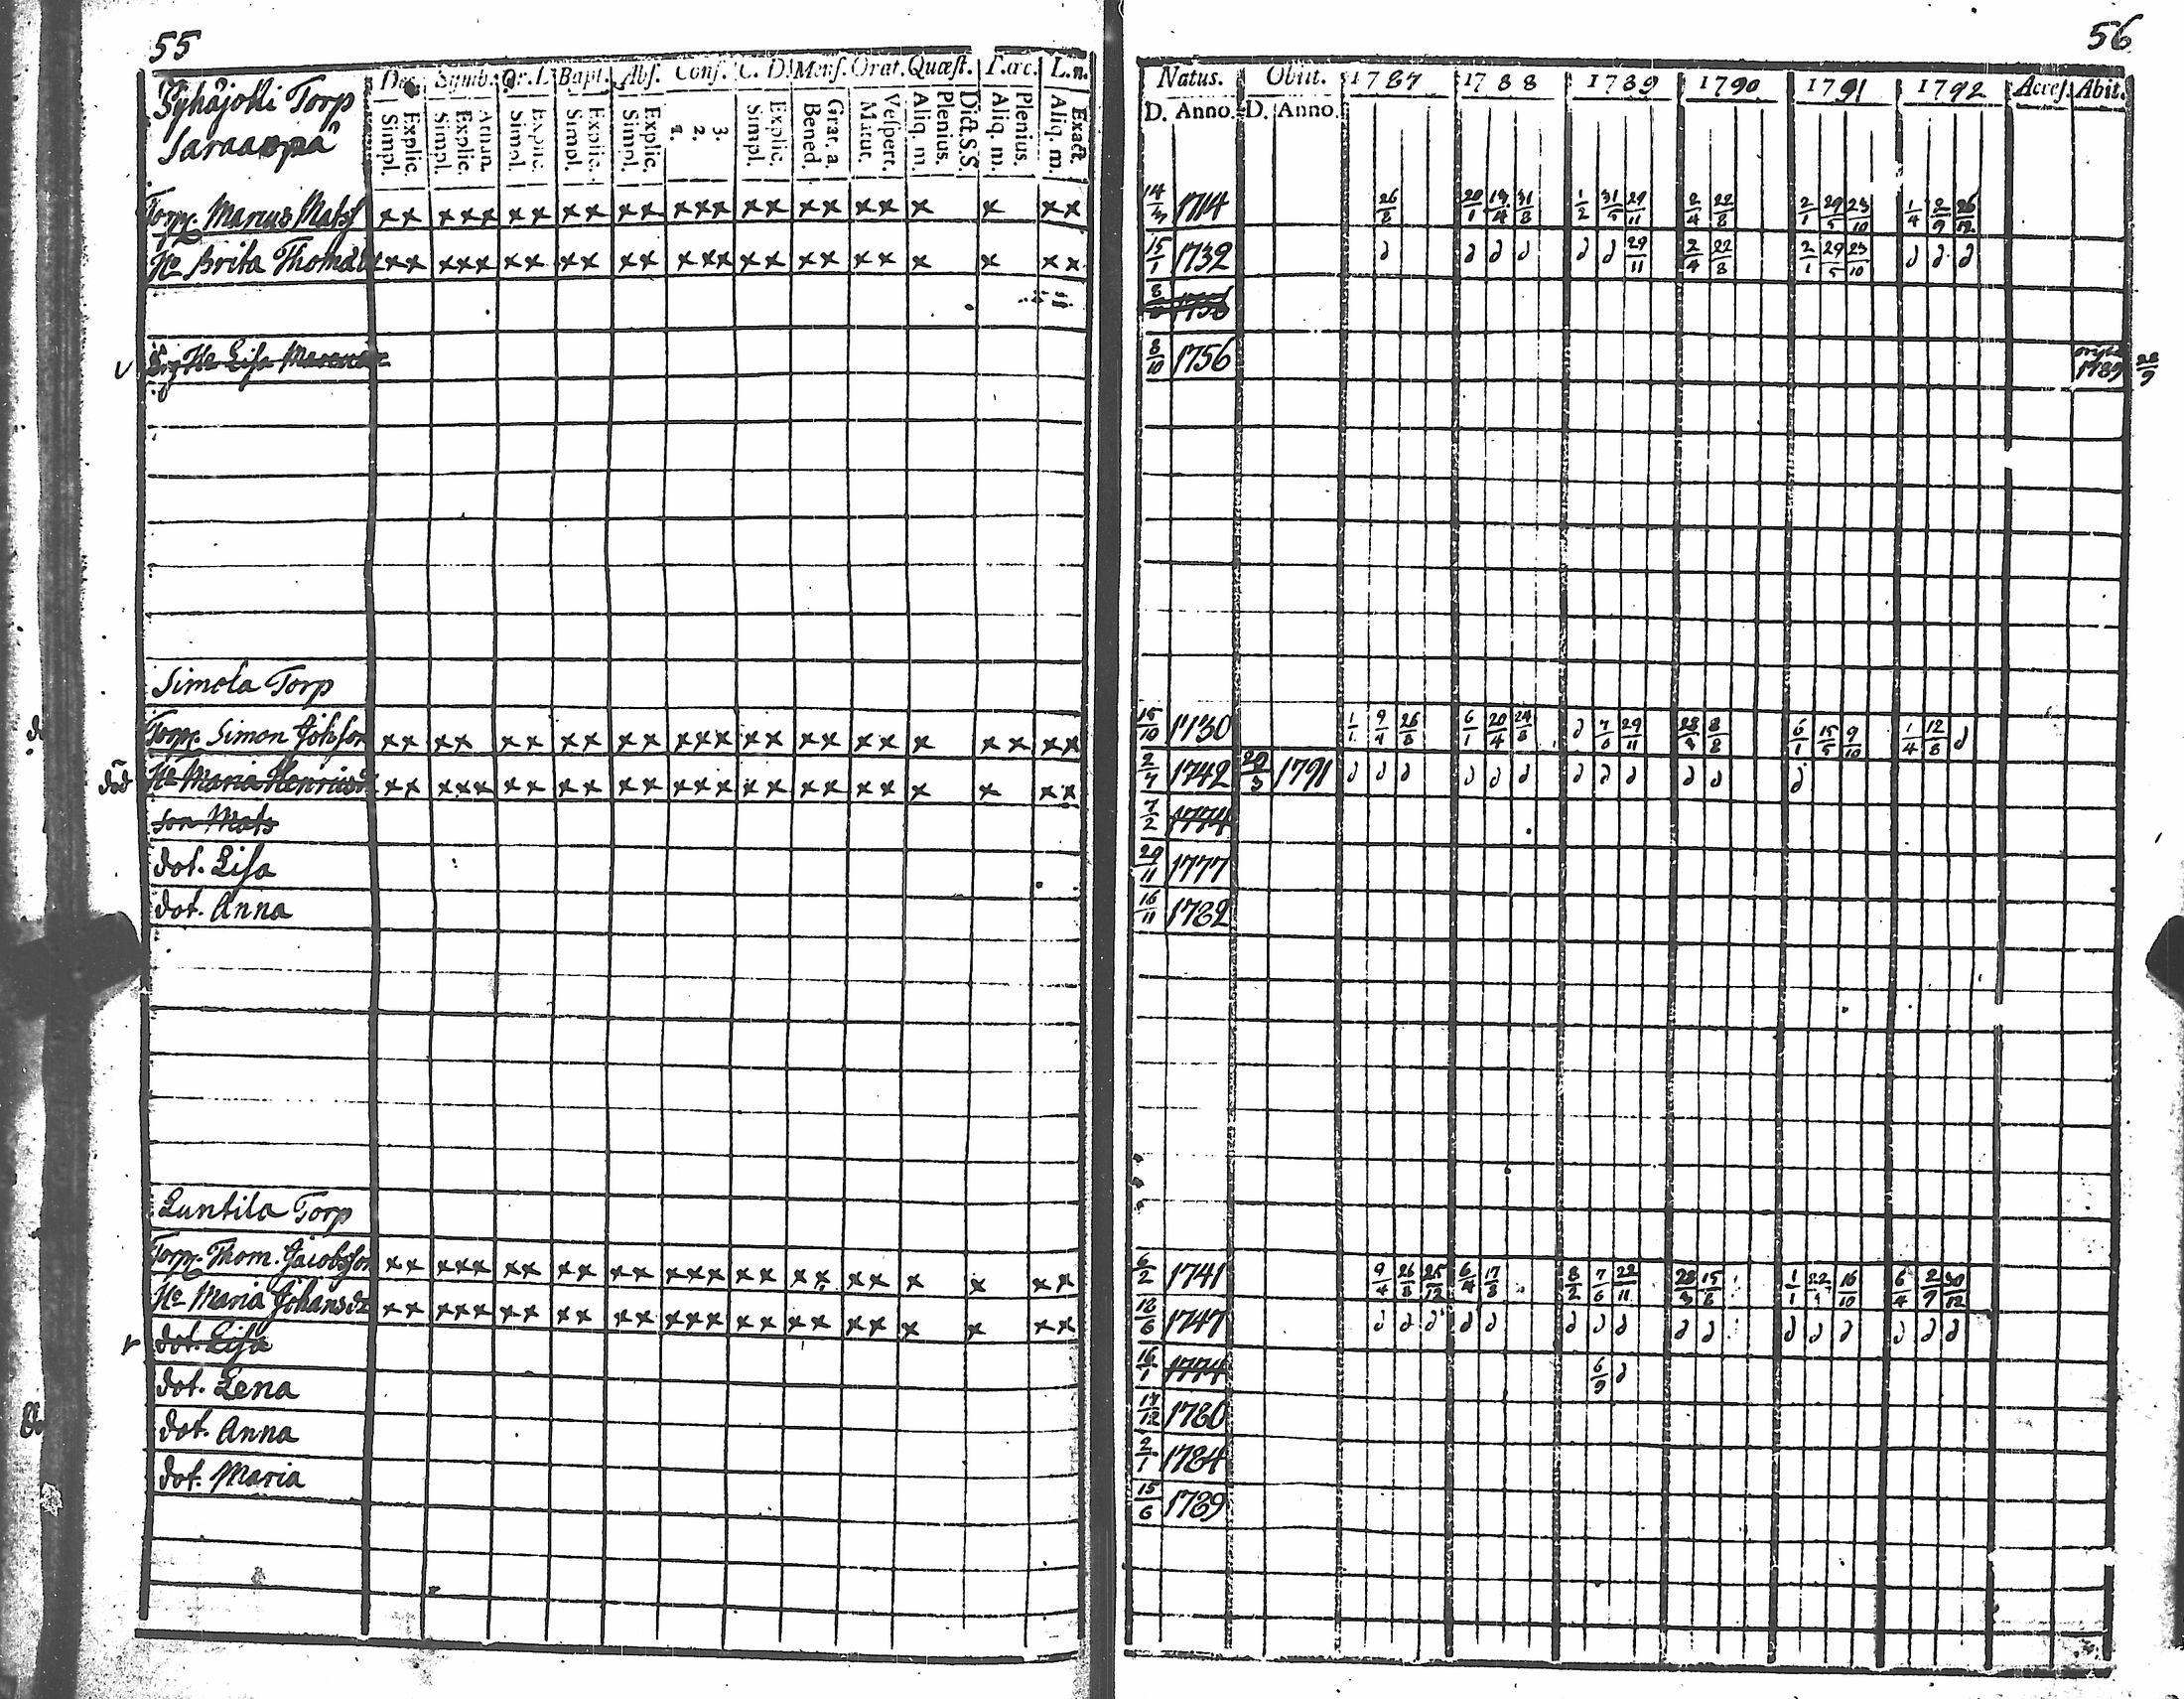 55
Dec. Symb. Or. D. Bapt. Abs. Conf. C. D. Mens. Orat. Quæst. T. œc. L. n.
Pyhäjoki Torp
Explic. Simpl. Athan. Explic. Simpl. Explic. Simpl. Explic. Simpl. Explic. Simpl. 3. 2. 1. Explic. Simpl. Grat. a. Bened. Vespert. Matut. Dict. S.S. Plenius. Aliq. m. Plenius. Aliq. m. Exact. Aliq. m.
Torp. Marcus Mats
x x x x x x x x x x x x x x x x x x x x x x x x
Hu Brita Thomad
x x x x x x x x x x x x x x x x x x x x x x x x
Lisa
Simola Torp
Torp. Simon Johsson
x x x x x x x x x x x x x x x x x x x x x x x x
död Hu Maria Henriksd
x x x x x x x x x x x x x x x x x x x x x x x x
son Mats
dot. Lisa
dot. Anna
Luntila Torp
Torp. Thom. Jacobsson
x x x x x x x x x x x x x x x x x x x x x x x x
Hu Maria Johansd
x x x x x x x x x x x x x x x x x x x x x x x x
dot. Lisa
dot. Lena
dot. Anna
dot. Maria
56
Natus. Obiit. 1787 1788 1789 1790 1791 1792 Acces. Abit.
D. Anno. D. Anno.
14/3 1714 26/8 20/1 13/4 31/8 1/2 31/5 29/11 2/4 22/8 2/1 29/5 23/10 1/4 2/9 26/12
15/1 1732 d d d d d d 29/11 2/4 22/8 2/1 29/5 23/10 d d d
1756
8/10 1756 1789 22/9
15/10 1730 1/1 9/4 26/8 6/1 20/4 24/8 d 7/6 29/11 28/3 8/8 6/1 15/5 9/10 1/4 12/8 d
2/7 1742 20/3 1791 d d d d d d d d d d d d
7/2 1774
20/11 1777
16/11 1782
6/2 1741 9/4 26/8 25/12 6/4 17/8 8/2 7/6 22/11 28/3 15/8 1/1 22/5 16/10 6/4 2/9 30/12
18/6 1747 d d d d d d d d d d d d d d d d
16/1 1774 6/9 d
17/12 1780
2/1 1784
15/6 1789